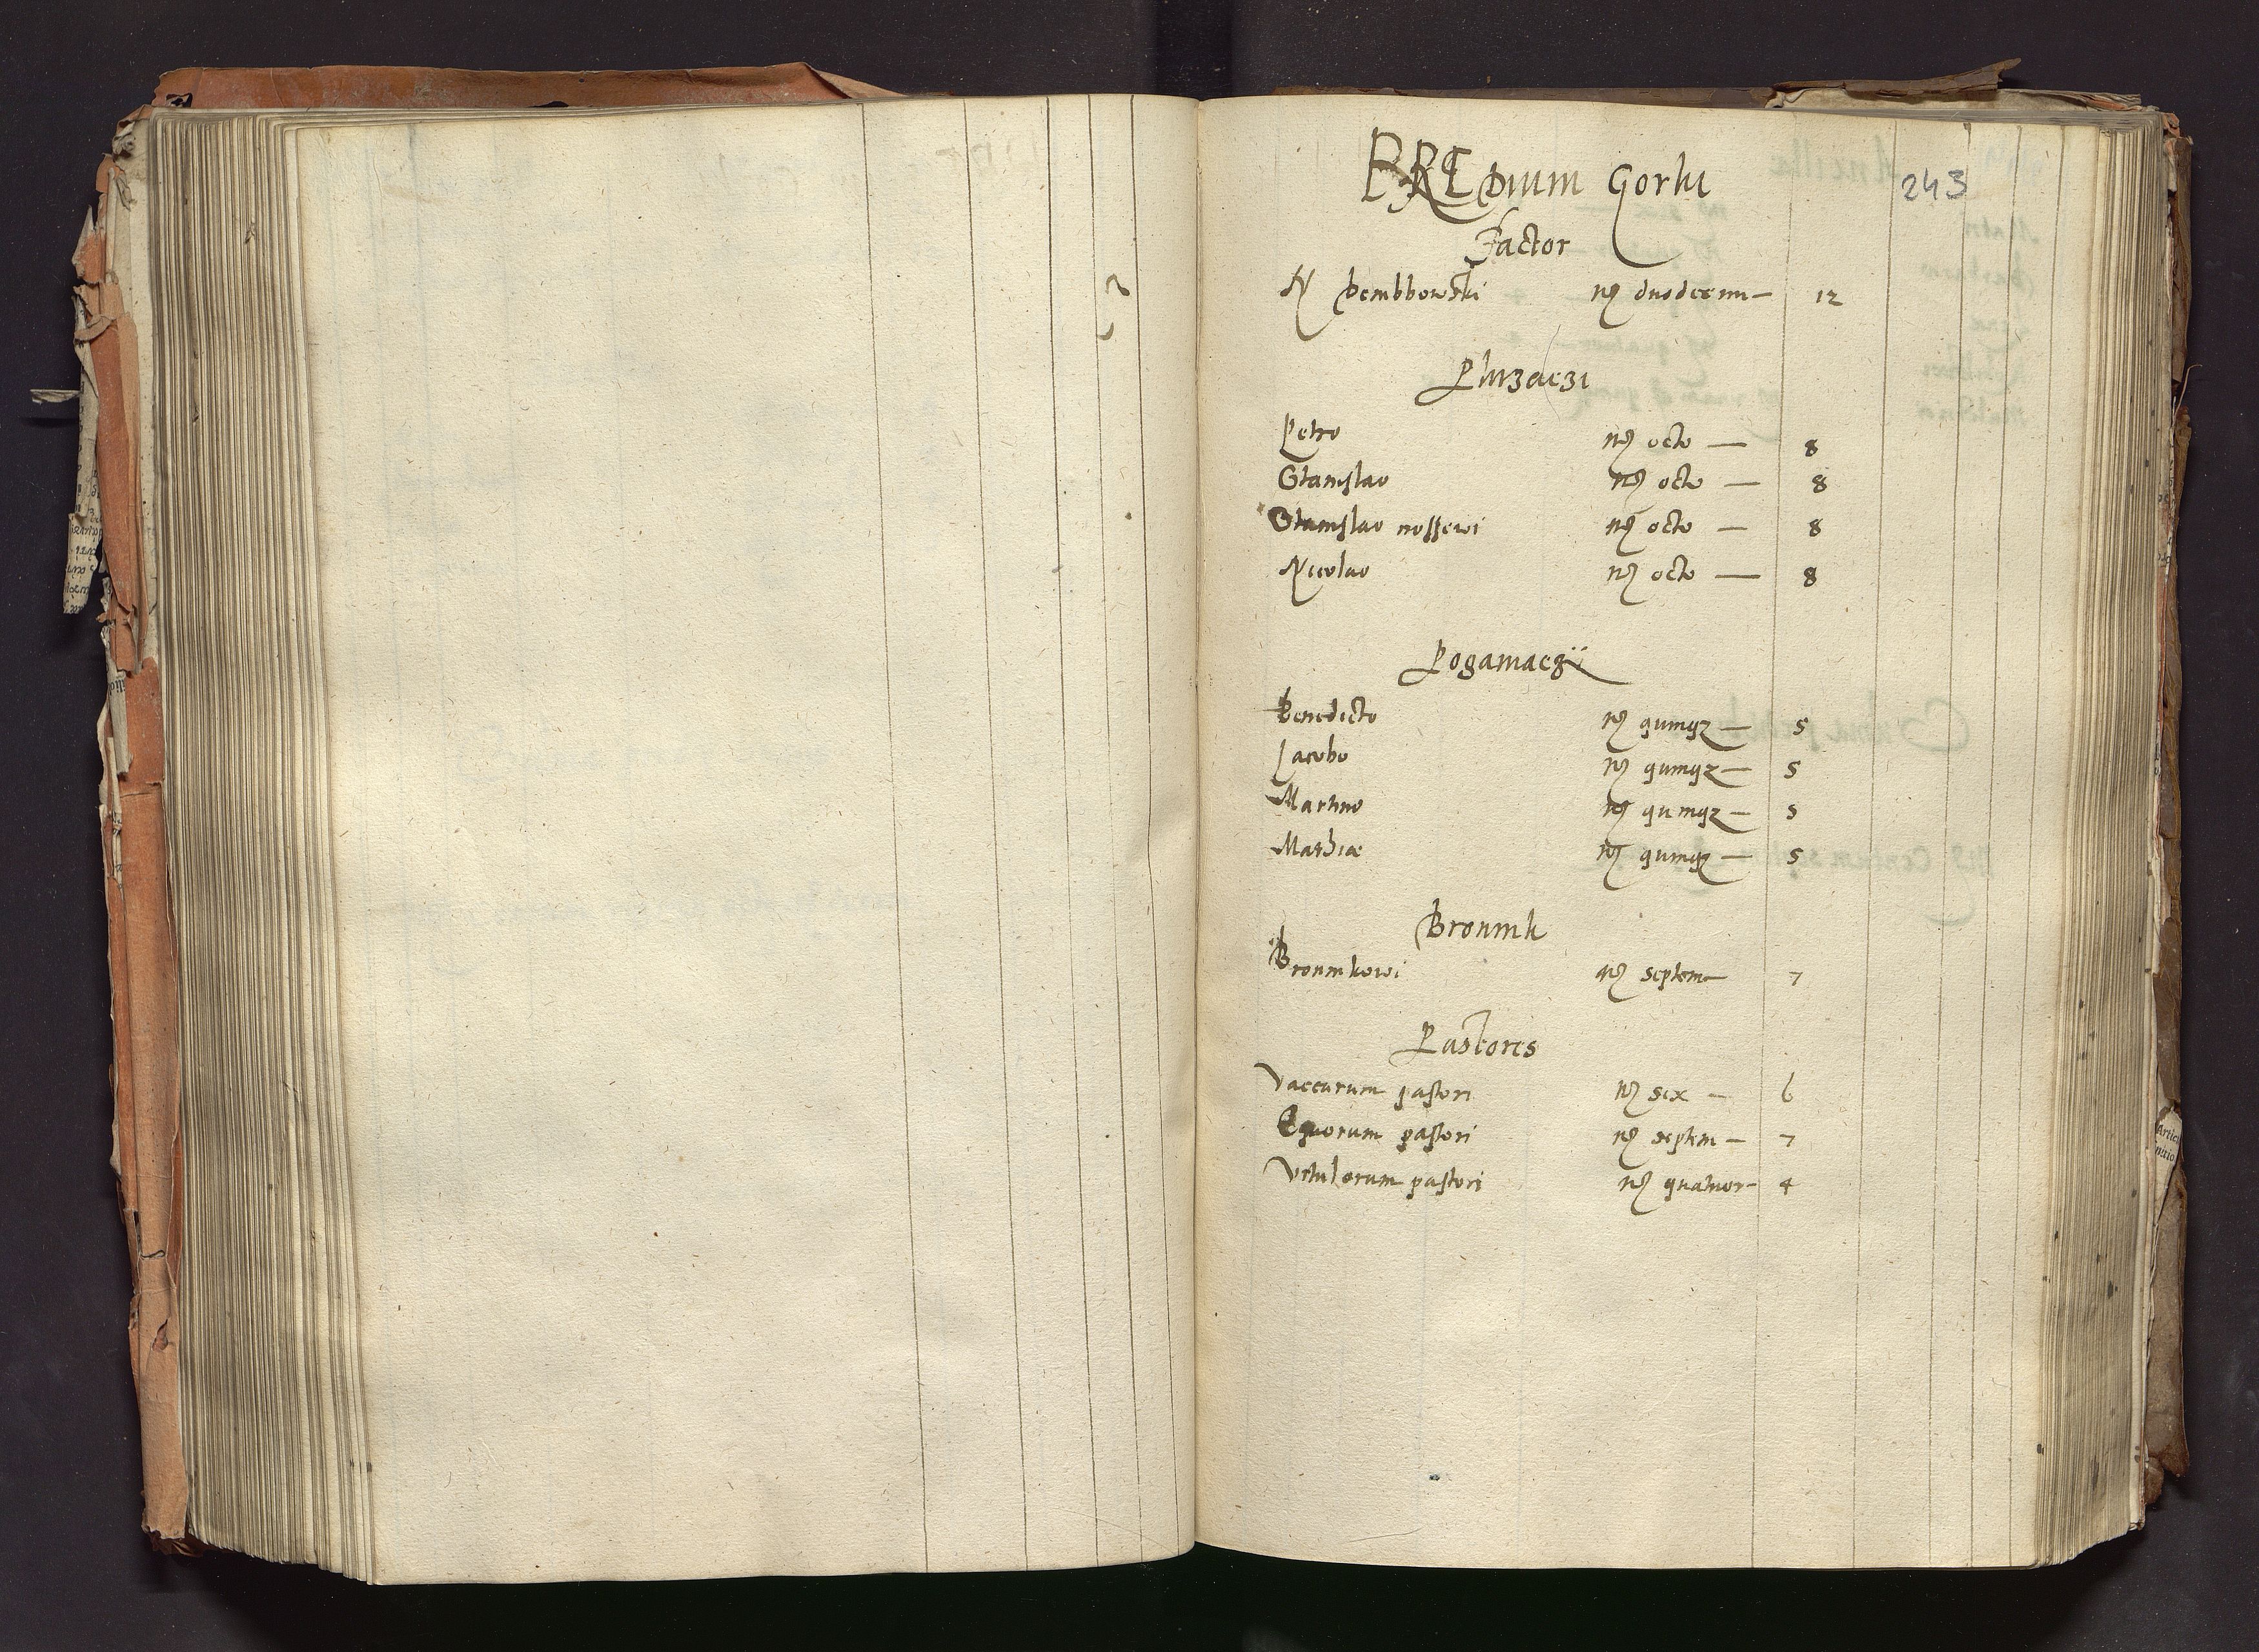 243
PREDium Gorki
Factor
N Dembbowski mҙ duodecim — 12
Plurzaczi
Petro mҙ octo — 8
Stanislao mҙ octo — 8
Stanislao nosssewi mҙ octo — 8
Nicolao mҙ octo — 8
Poganiaczÿ
Benedicto mҙ quinqꝫ — 5
Jacobo mҙ quinqꝫ — 5
Martino mҙ quinqꝫ — 5
Mathiæ mҙ quinqꝫ — 5
Bronnik
Bronnikowi mҙ septem — 7
Pastores
Vaccarum pastori mҙ sex — 6
Equorum pastori mҙ septem — 7
Vitulorum pastori mҙ quatuor — 4